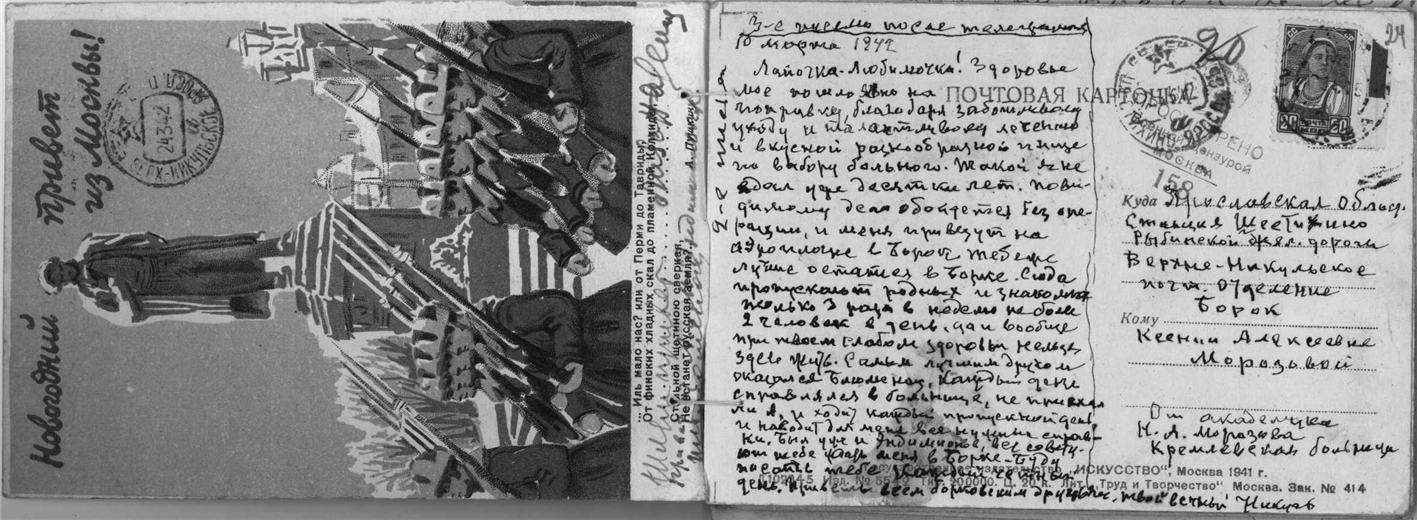 Новогодний привет
из Москвы!
24 3 42
ВЕРХ-НИКУЛЬСКОЕ
... Иль мало нас? или от Перми до Тавриды,
От финских хладных скал до пламенной Колхиды,
Стальной щетиною сверкая,
Не встанет русская земля?
А. Пушкин
3-е письмо после телеграммы
10 марта 1942
Лапочка-Любимочка! Здоровье
мое пошло на
поправку, благодаря заботливому
уходу и талантливому лечению
и вкусной разнообразной пище
по выбору больного. Такой я не
едал уже десятки лет. Пови-
димому дело обойдется без опе-
рации, и меня привезут на
аэроплане в Борок. Тебе же
лучше остаться в Борке. Сюда
пропускают родных и знакомых
только 3 раза в неделю не более
2 человек в день, да и вообще
при твоем слабом здоровье нельзя
здесь жить. Самым лучшим другом
оказался Блюменау. Каждый день
справлялся в больнице, не приехал
ли я, и ходит каждый пропускной день
и наводит для меня все нужные справ-
ки. Был уже и все совету-
ют тебе ждать меня в Борке. Буду
писать тебе каждый четный
день. Привет всем борковским друзьям, твой вечный Николай
ПОЧТОВАЯ КАРТОЧКА
ПРОСМОТРЕНО
Военной Цензурой
МОСКВА
158
20 20
24
Куда Ярославская Област.
Станция Шестихино
Рыбинской жел. дороги
Верхне-Никульское
почт. отделение
Борок
Кому
Ксении Алексеевне
Морозовой
От академика
Н. А. Морозова
Кремлевская больница
издательство „ИСКУССТВО“, Москва 1941 г.
Изд. № 5549 Тир. 200000. Ц. 20 к. Лит. „Труд и Творчество“ Москва. Зак. № 414